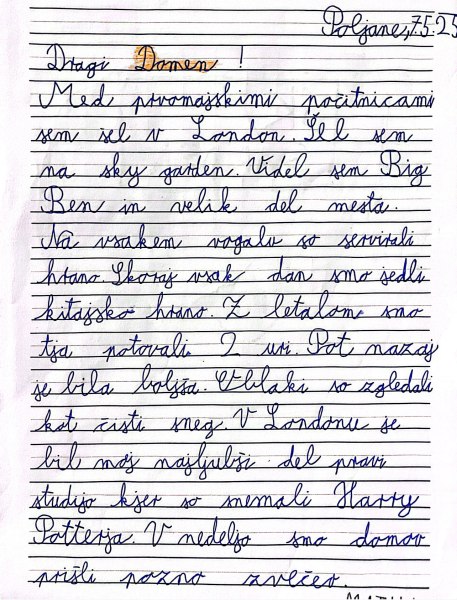 Poljane, 7.5.25
Dragi Domen !
Med prvomajskimi počitnicami
sem šel v London. Šel sem
na sky garden. Videl sem Big
Ben in velik del mesta.
Na vsakem vogalu so servirali
hrano. Skoraj vsak dan smo jedli
kitajsko hrano. Z letalom smo
tja potovali 2 uri. Pot nazaj
je bila boljša. Oblaki so zgledali
kot čisti sneg. V Londonu je
bil moj najljubši del pravi
studijo kjer so snemali Harry
Potterja. V nedeljo smo domov
prišli pozno zvečer.